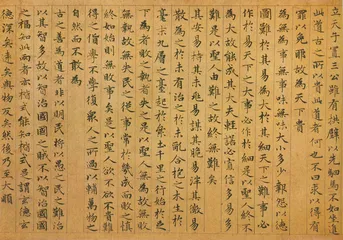 立天子置三公雖有拱璧以先駟馬不如坐進
此道古之所以貴此道者何也不曰求以得有
罪以免耶故為天下貴
為無為事無事味無味大小多少報怨以德
圖難於其易為大於其細天下之難事必
作於易天下之大事必作於細是以聖人終不
為大故能成其大夫輕諾必寡信多易必多
難是以聖人由難之故終無難矣
其安易持其未兆易謀其脆易泮其微易
散為之於未有治之於未亂合抱之木生於
毫末九層之臺起於累土千里之行始於足
下為者敗之執者失之是以聖人無為故無敗
無執故無失民之從事常於幾成而敗之慎
終如始則無敗事矣是以聖人欲不欲不貴難
得之貨學不學復眾人之所過以輔萬物之
自然而不敢為
古之善為道者非以明民將以愚之民之難治
以其智多故以智治國國之賊不以智治國國
之福知此兩者亦楷式能知楷式是謂玄德玄
德深矣遠矣與物反矣然後乃至大順